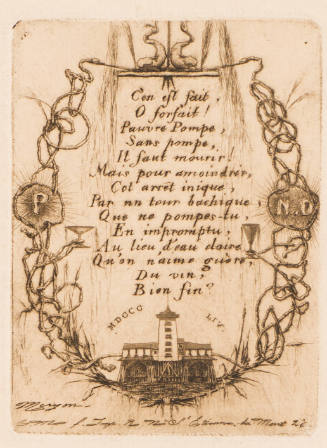 C'en est fait,
O forfait!
Pauvre Pompe,
Sans pompe,
Il faut mourir!
Mais pour amoindrir,
Cet arrêt inique,
Par un tour bachique,
Que ne pompes-tu,
En impromptu,
Au lieu d'eau claire
Qu'on n'aime guère,
Du vin,
Bien fin?
P
N.D
MDCCC LIV.
Meryon